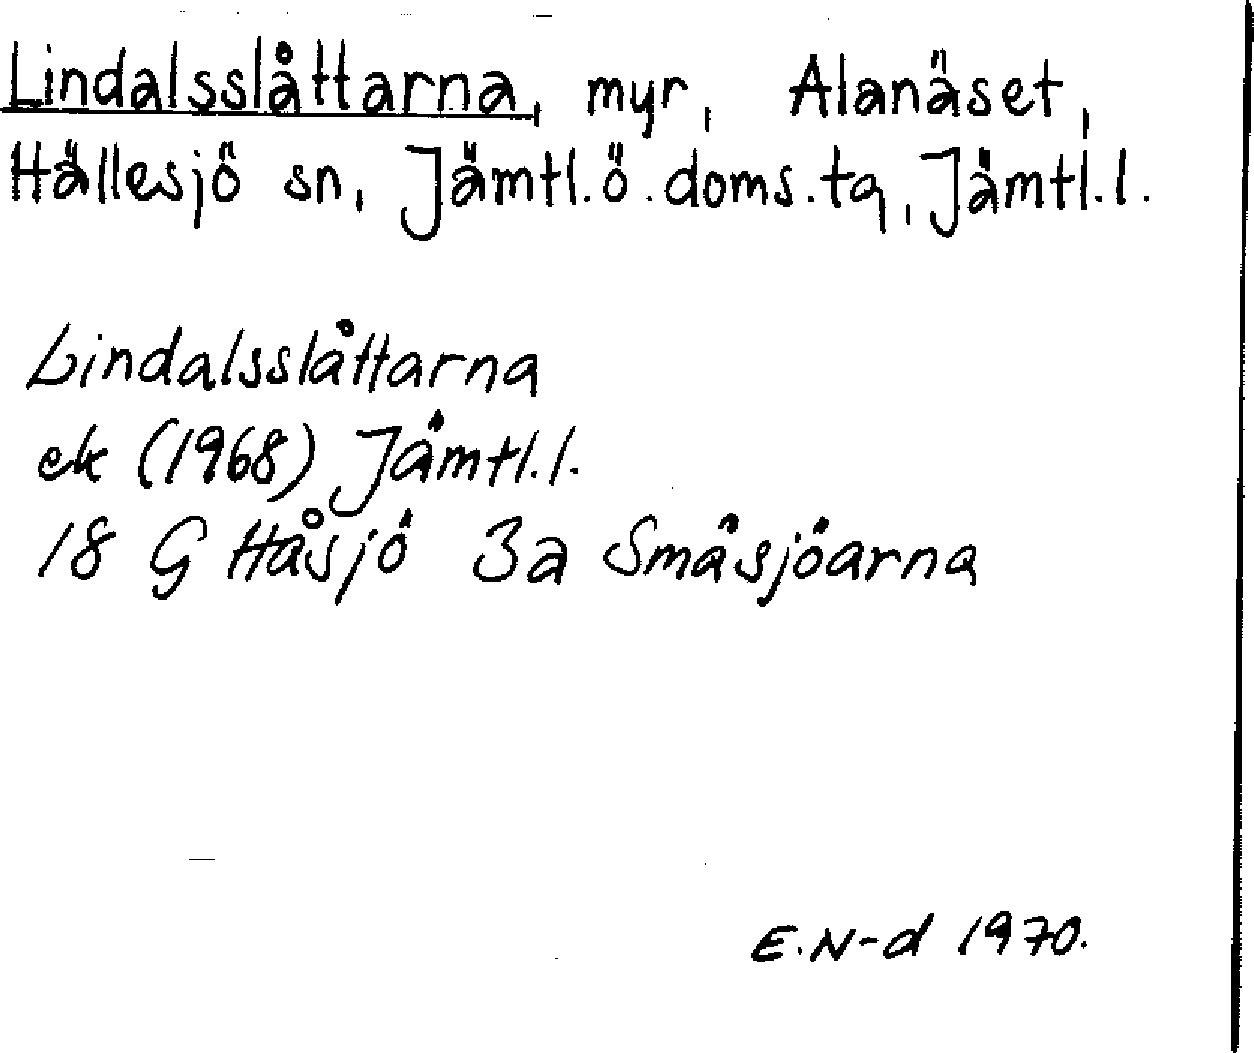 Lindalsslåttarna, myr, Alanäset,
Hällesjö sn, Jämtl.ö.doms.tq, Jämtl.l.
Lindalsslåttarna
ek (1968) Jämtl.l.
18 G Håsjö 3a Småsjöarna
E.N-d 1970.